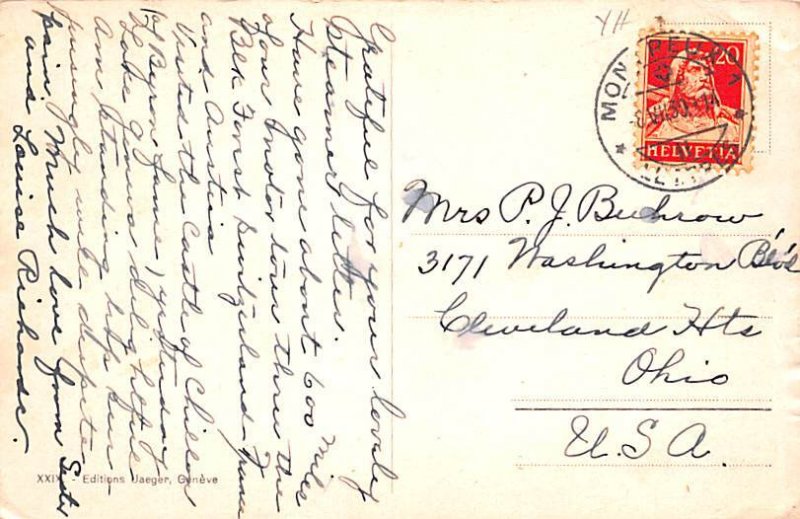 Grateful for your lovely
steamer letter.
Have gone about 600 miles
of our motor tour thru the
Blk Forst Switzerland France
and Austria
Visited the Castle of Chillon
(of Byron fame) yesterday
Lake Geneva delightful
Am standing trip sur-
prisingly well despite
pain. Much love from Sister
and Louise Richards.
YH
MON
20
HELVETIA
Mrs P. J. Buhrow
3171 Washington Blvd
Cleveland Hts
Ohio
U.S.A.
Editions Jaeger, Genève